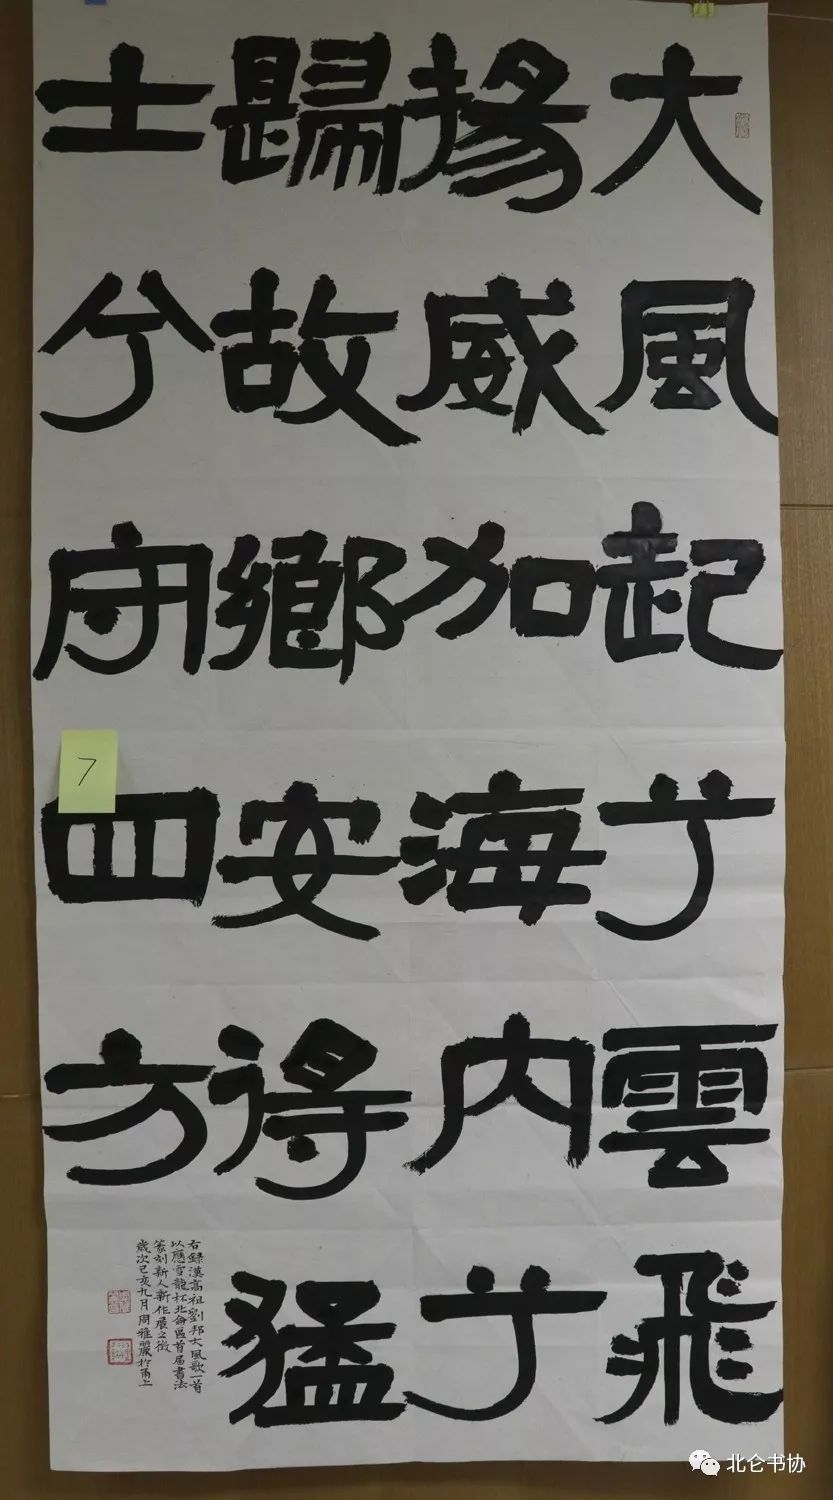 大風起兮雲飛
揚威加海内兮
歸故鄉安得猛
士兮守四方
右録漢高祖劉邦大風歌一首
以應雪龍杯北侖區首届書法
篆刻新人新作展之徵
歲次己亥九月周雅麗於甬上
7
北仑书协